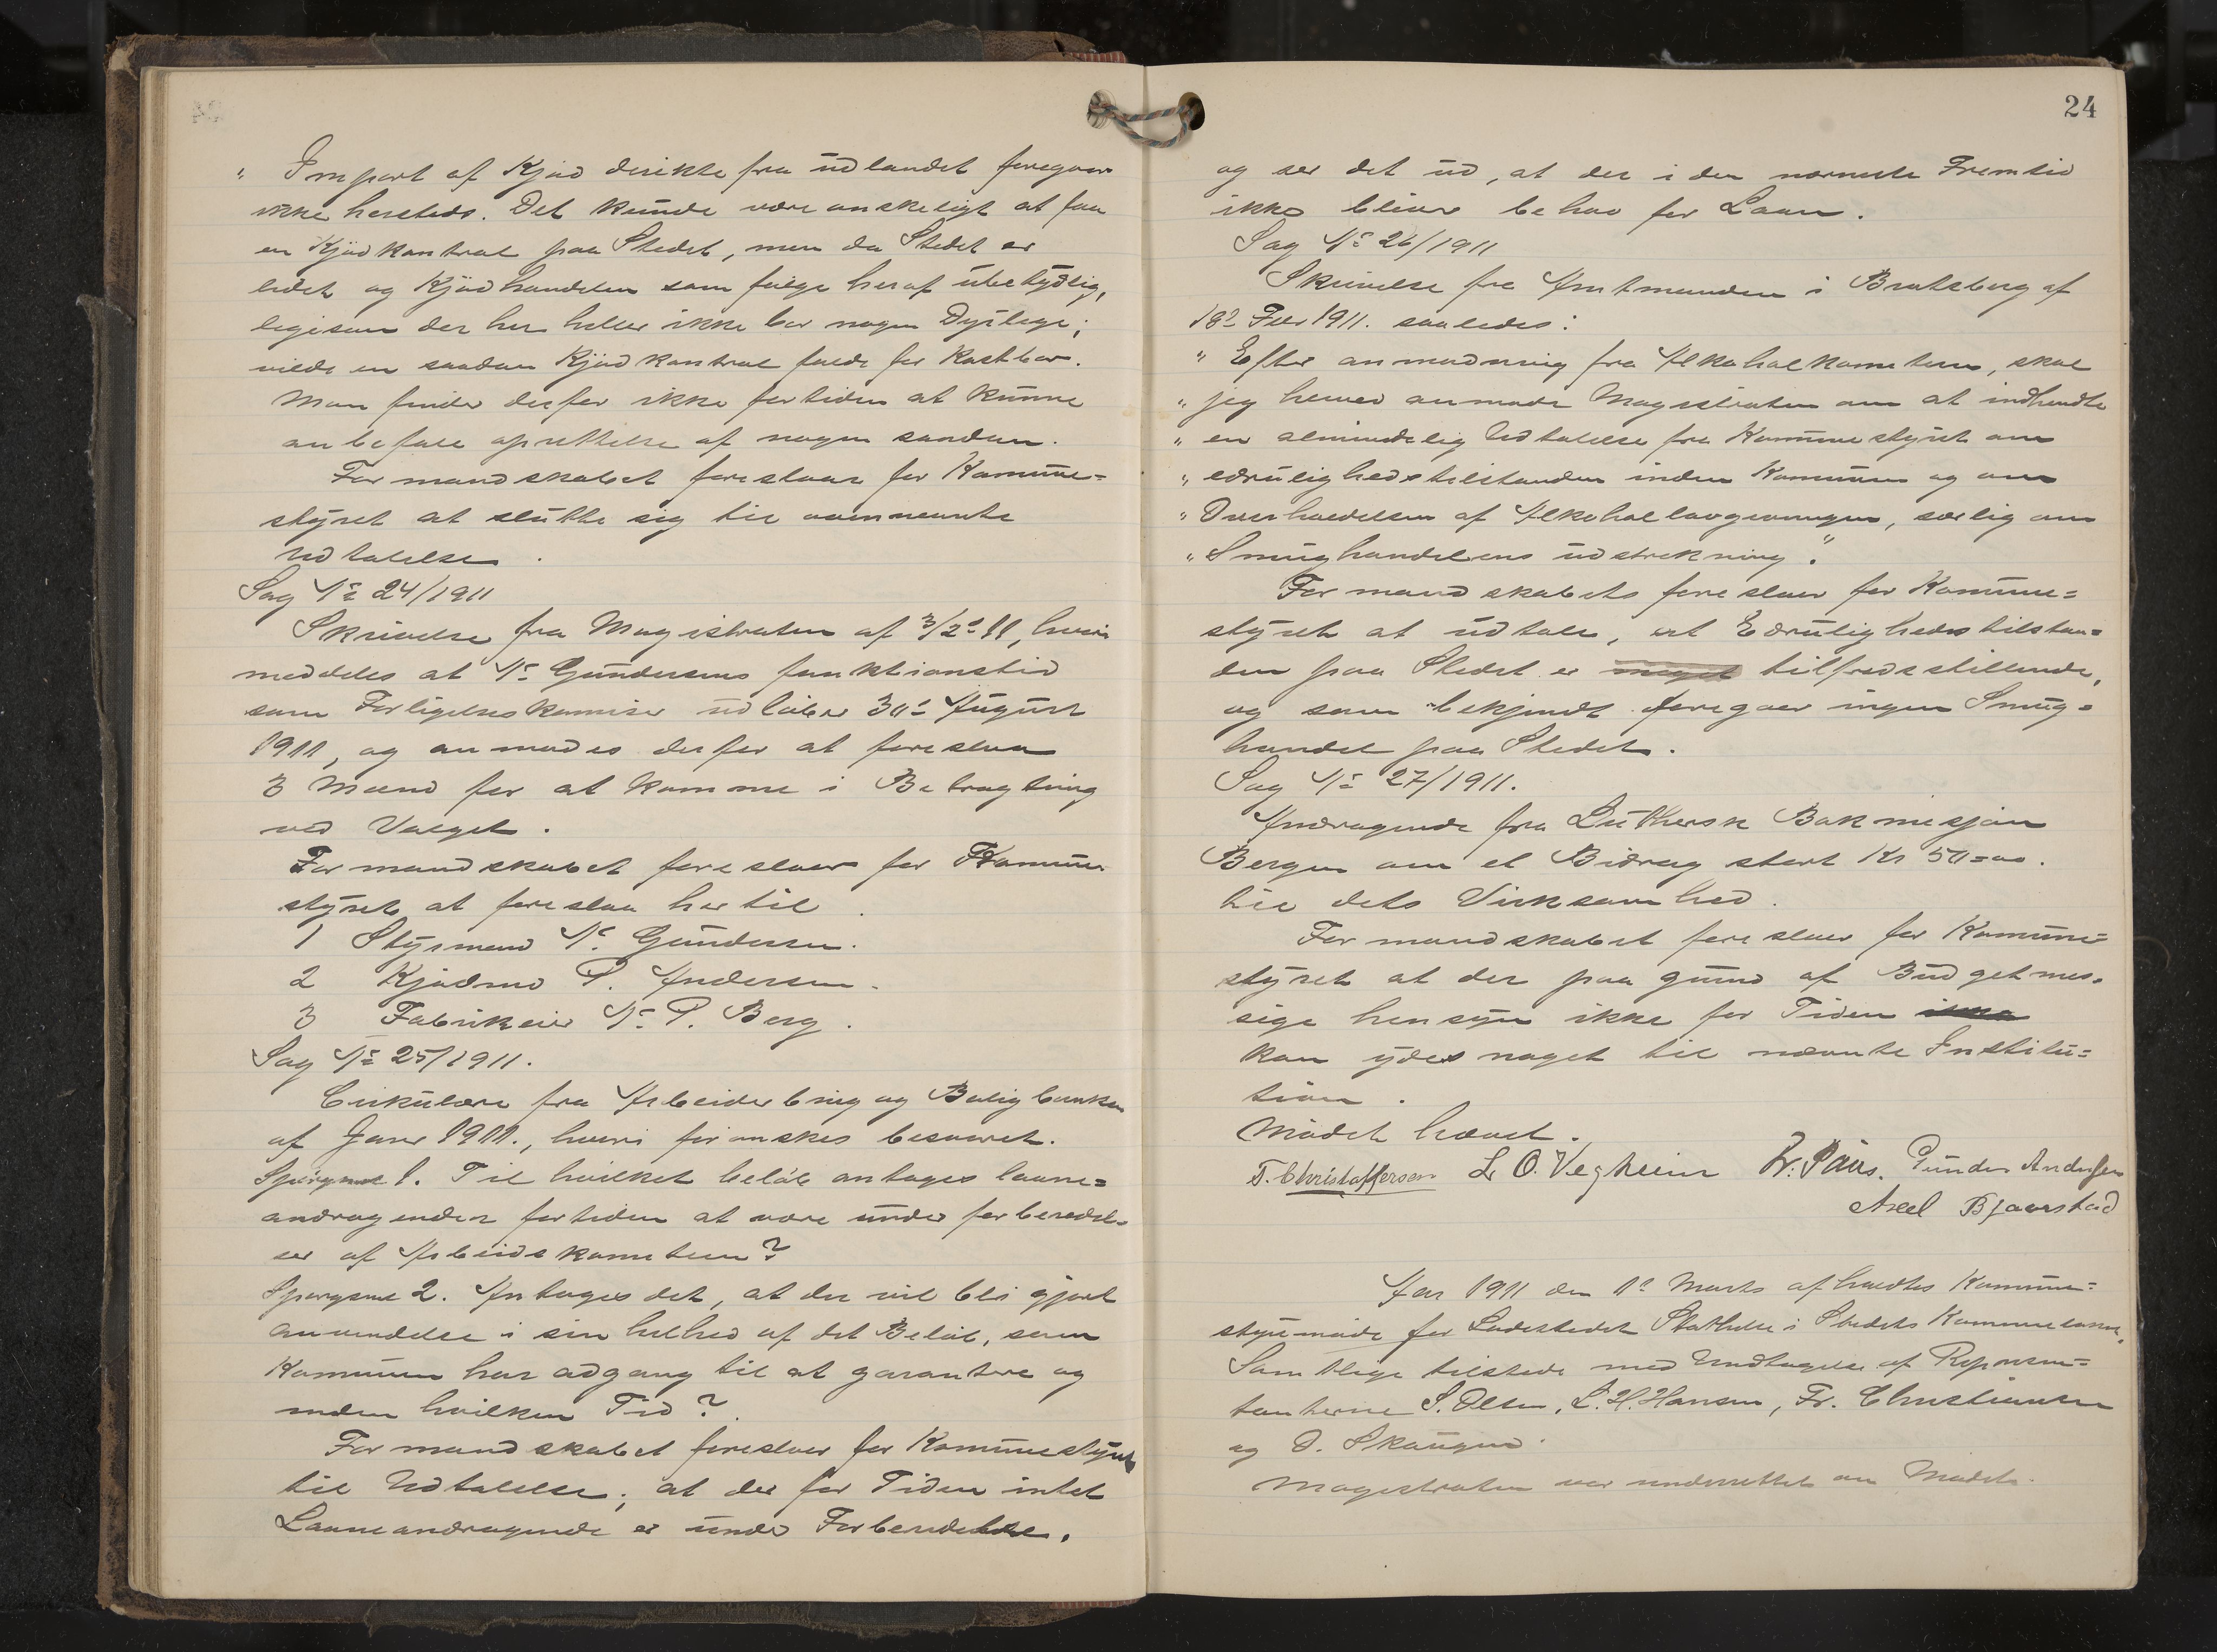 „ Import af Kjød direkte fra udlandet foregaar
ikke hersteds. Det kunde være ønskeligt at faa
en Kjødkontrol paa Stedet, men da Stedet er
lidet og Kjødhandelen som følge heraf ubetydelig,
ligesom der her heller ikke bor nogen Dyrlæge;
vilde en saadan Kjødkontrol falde for Kostbar.
Man finder derfor ikke fortiden at kunne
anbefale oprettelse af nogen saadan.
Formandskabet foreslaar for Komune=
styret at slutte sig til ovennevnte
Udtalelse.
Sag No 24/1911
Skrivelse fra Magistraten af 3/2 11, hvori
meddeles at N. Gundersens funktionstid
som Forligelseskomisær udløber 30te August
1911, og anmodes derfor at foreslaa
3 Mænd for at komme i Betragtning
ved Valget.
Formandskabet foreslaar for Komune
styret at foreslaa hertil.
1 Styrmand N. Gundersen.
2 Kjødmd P. Andersen.
3 Fabrikeier N. P. Berg.
Sag No 25/1911.
Cirkulære fra Arbeiderbrug og Boligbanken
af Janr 1911., hvori førønskes besvaret.
Spørgsml 1. Til hvilket beløb antages laane=
andragender fortiden at være under forberedel=
ser af Arbeidskomiteen?
Spørgsml 2. Antages det, at der vil bli gjort
anvendelse i sin helhed af det Beløb, som
Komunen har adgang til at garantere og
inden hvilken Tid?
Formandskabet foreslaar for Komunestyret
til Udtalelse; at der for Tiden intet
Laaneandragende er under Forberedelse,
24
og ser det ud, at der i den nærmeste Fremtid
ikke bliver behov for Laan.
Sag No 26/1911
Skrivelse fra Amtmanden i Bratsberg af
18de Febr 1911. saaledes:
„ Efter anmodning fra Alkoholkomiteen, skal
„ jeg herved anmode Magistraten om at indhendte
„ en almindelig Udtalelse fra Komunestyret om
„ ædruelighedstilstanden inden Komunen og om
„ Overholdelsen af Alkohollovgivningen, særlig om
„ Smughandelens udstrekning."
Formandskabets foreslaar for Komune=
styret at udtale, at Edrulighedstilstan=
den paa Stedet er meget tilfredsstillende,
og som bekjendt foregaar ingen Smug=
handel paa Stedet.
Sag No 27/1911.
Andragende fra Luthersk Bokmisjon
Bergen om et Bidrag stort Kr 50=00.
til dets Virksomhed.
Formandskabet foreslaar for Komune=
styret at der paa grund af Budgetmes=
sige hensyn ikke for Tiden
kan ydes noget til nævnte Institu=
tion.
Mødet hævet.
T. Christoffersen L O. Vegheim Kr. Paus. Gunder Andersen
Axel Bjaarstad
Aar 1911 den 1te Marts afholdtes Komune=
styremøde for Ladestedet Stathelle i Stedets Komunelocale.
Samtlige tilstede med Undtagelse af Repræsen=
tanterne S. Olsen, L. H. Hansen, Fr. Christiansen
og O. Skaugen.
Magistraten var underrettet om Mødet.